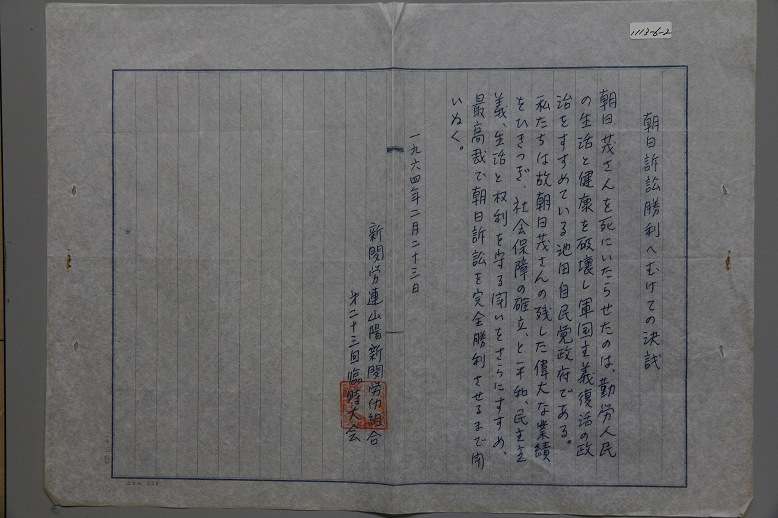 1113-6-2
朝日訴訟勝利へむけての決議
朝日茂さんを死にいたらせたのは、勤労人民
の生活と健康を破壊し軍国主義復活の政
治をすすめている池田自民党政府である。
私たちは故朝日茂さんの残した偉大な業績
をひきつぎ、社会保障の確立、と平和、民主主
義、生活と权利を守る闘いをさらにすすめ、
最高裁で朝日訴訟を完全勝利させるまで闘
いぬく。
一九六四年二月二十三日
新聞労連山陽新聞労仂組合
才二十三回臨時大会